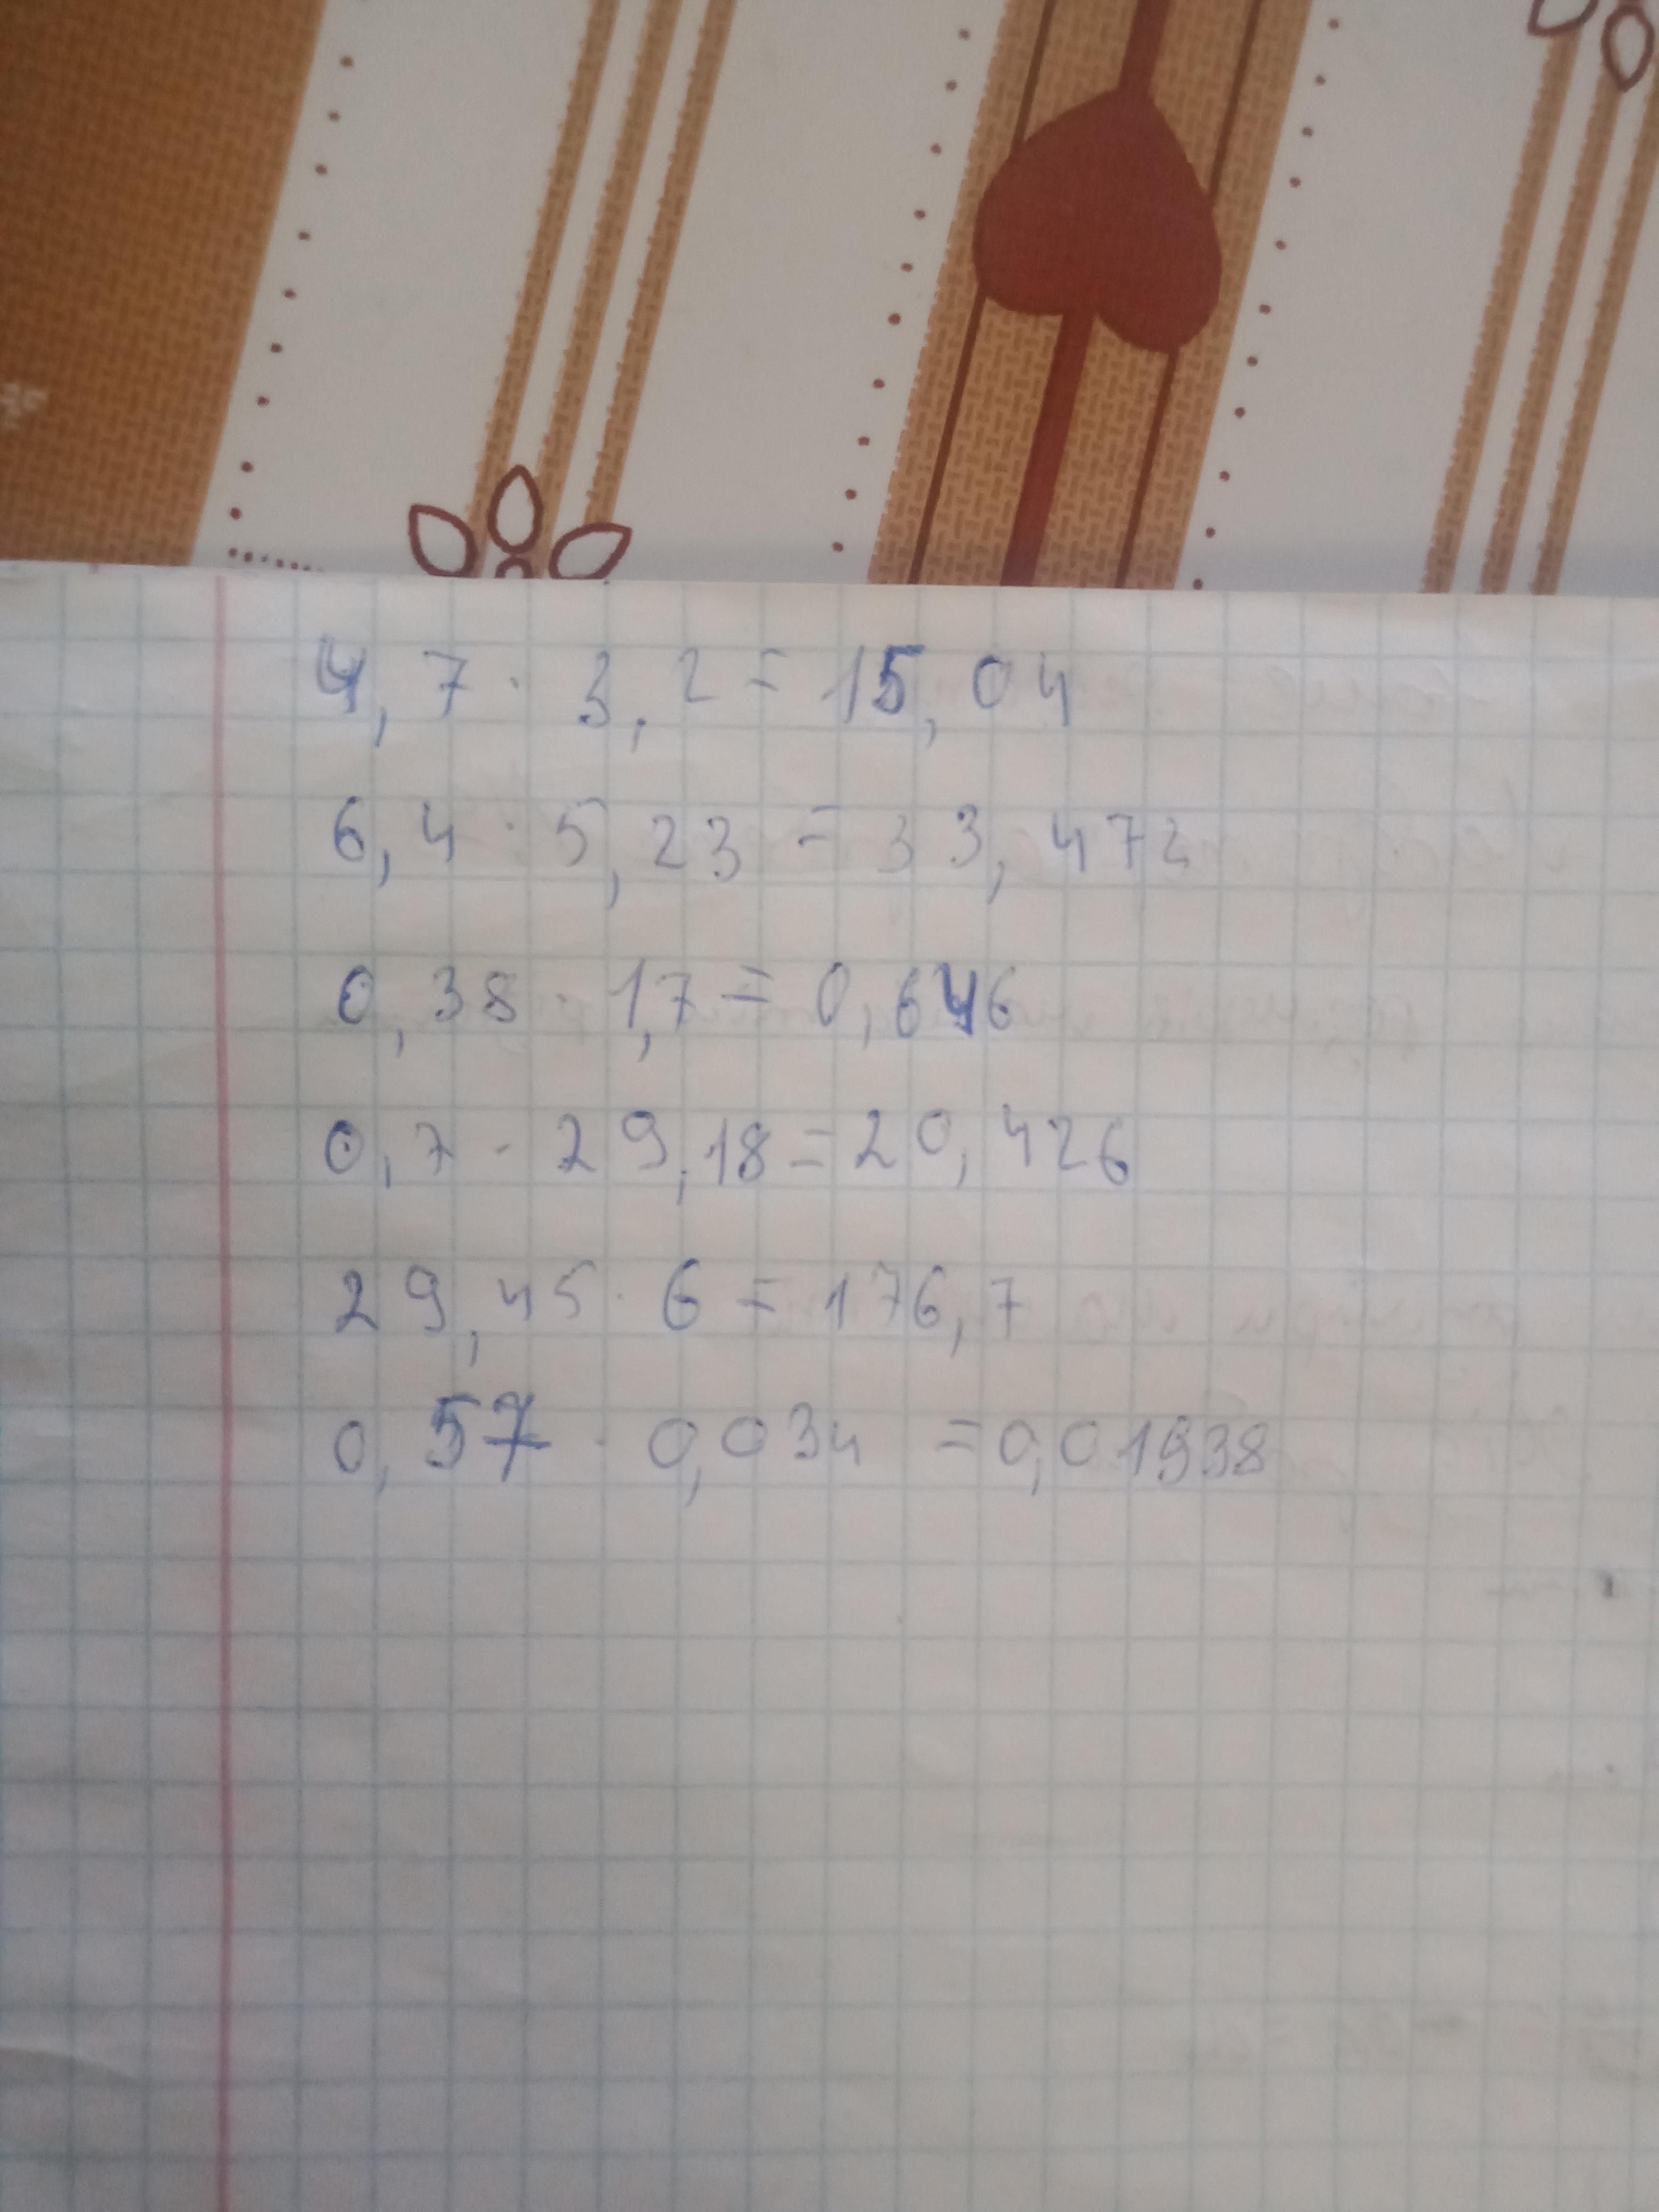 4,7 · 3,2 = 15,04
6,4 · 5,23 = 33,472
0,38 · 1,7 = 0,646
0,7 · 29,18 = 20,426
29,45 · 6 = 176,7
0,57 · 0,034 = 0,01938